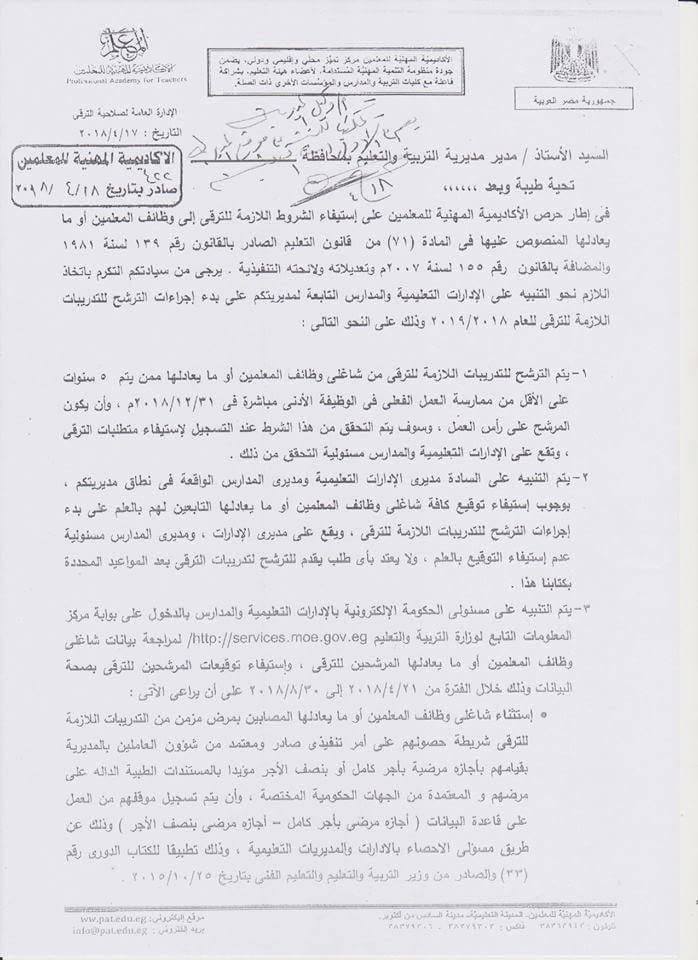 الأكاديمية المهنية للمعلمين
Professional Academy for Teachers
الأكاديمية المهنية للمعلمين مركز تميز محلي وإقليمي ودولي، يضمن
جودة منظومة التنمية المهنية المستدامة، لأعضاء هيئة التعليم، بشراكة
فاعلة مع كليات التربية والمدارس والمؤسسات الأخرى ذات الصلة.
جمهورية مصر العربية
الإدارة العامة لصلاحية الترقى
التاريخ : ٢٠١٨/٤/١٧
الاكاديمية المهنية للمعلمين
٤٢٢
صادر بتاريخ ٤/١٨ /٢٠١٨
السيد الأستاذ / مدير مديرية التربية والتعليم بمحافظة
٤/١٨
تحية طيبة وبعد ،،،،،،
فى إطار حرص الأكاديمية المهنية للمعلمين على إستيفاء الشروط اللازمة للترقى إلى وظائف المعلمين أو ما
يعادلها المنصوص عليها فى المادة (٧١) من قانون التعليم الصادر بالقانون رقم ١٣٩ لسنة ١٩٨١
والمضافة بالقانون رقم ١٥٥ لسنة ٢٠٠٧م وتعديلاته ولائحته التنفيذية . يرجى من سيادتكم التكرم باتخاذ
اللازم نحو التنبيه على الإدارات التعليمية والمدارس التابعة لمديريتكم على بدء إجراءات الترشح للتدريبات
اللازمة للترقى للعام ٢٠١٩/٢٠١٨ وذلك على النحو التالى :
١- يتم الترشح للتدريبات اللازمة للترقى من شاغلى وظائف المعلمين أو ما يعادلها ممن يتم ٥ سنوات
على الأقل من ممارسة العمل الفعلى فى الوظيفة الأدنى مباشرة فى ٢٠١٨/١٢/٣١م ، وأن يكون
المرشح على رأس العمل ، وسوف يتم التحقق من هذا الشرط عند التسجيل لإستيفاء متطلبات الترقى
، وتقع على الإدارات التعليمية والمدارس مسئولية التحقق من ذلك .
٢- يتم التنبيه على السادة مديرى الإدارات التعليمية ومديرى المدارس الواقعة فى نطاق مديريتكم ،
بوجوب إستيفاء توقيع كافة شاغلى وظائف المعلمين أو ما يعادلها التابعين لهم بالعلم على بدء
إجراءات الترشح للتدريبات اللازمة للترقى ، ويقع على مديرى الإدارات ، ومديرى المدارس مسئولية
عدم إستيفاء التوقيع بالعلم ، ولا يعتد بأى طلب يقدم للترشح لتدريبات الترقى بعد المواعيد المحددة
بكتابنا هذا .
٣- يتم التنبيه على مسئولى الحكومة الإلكترونية بالإدارات التعليمية والمدارس بالدخول على بوابة مركز
المعلومات التابع لوزارة التربية والتعليم http://services.moe.gov.eg/ لمراجعة بيانات شاغلى
وظائف المعلمين أو ما يعادلها المرشحين للترقى ، وإستيفاء توقيعات المرشحين للترقى بصحة
البيانات وذلك خلال الفترة من ٢٠١٨/٤/٢١ إلى ٢٠١٨/٨/٣٠ على أن يراعى الآتى :
• إستثناء شاغلى وظائف المعلمين أو ما يعادلها المصابين بمرض مزمن من التدريبات اللازمة
للترقى شريطة حصولهم على أمر تنفيذى صادر ومعتمد من شؤون العاملين بالمديرية
بقيامهم بأجازه مرضية بأجر كامل أو بنصف الأجر مؤيدا بالمستندات الطبية الداله على
مرضهم و المعتمدة من الجهات الحكومية المختصة ، وأن يتم تسجيل موقفهم من العمل
على قاعدة البيانات ( أجازه مرضي بأجر كامل – أجازه مرضي بنصف الأجر ) وذلك عن
طريق مسؤلى الاحصاء بالادارات والمديريات التعليمية ، وذلك تطبيقا للكتاب الدورى رقم
(٣٣) والصادر من وزير التربية والتعليم والتعليم الفنى بتاريخ ٢٠١٥/١٠/٢٥ .
الأكاديمية المهنية للمعلمين، المدينة التعليمية، مدينة السادس من أكتوبر.
تليفون : ٣٨٣٦٢٩٤٢ فاكس : ٣٨٣٧٩٣٠٣ - ٣٨٣٧٩٣٠٦
موقع إليكتروني: www.pat.edu.eg
بريد إليكتروني: info@pat.edu.eg